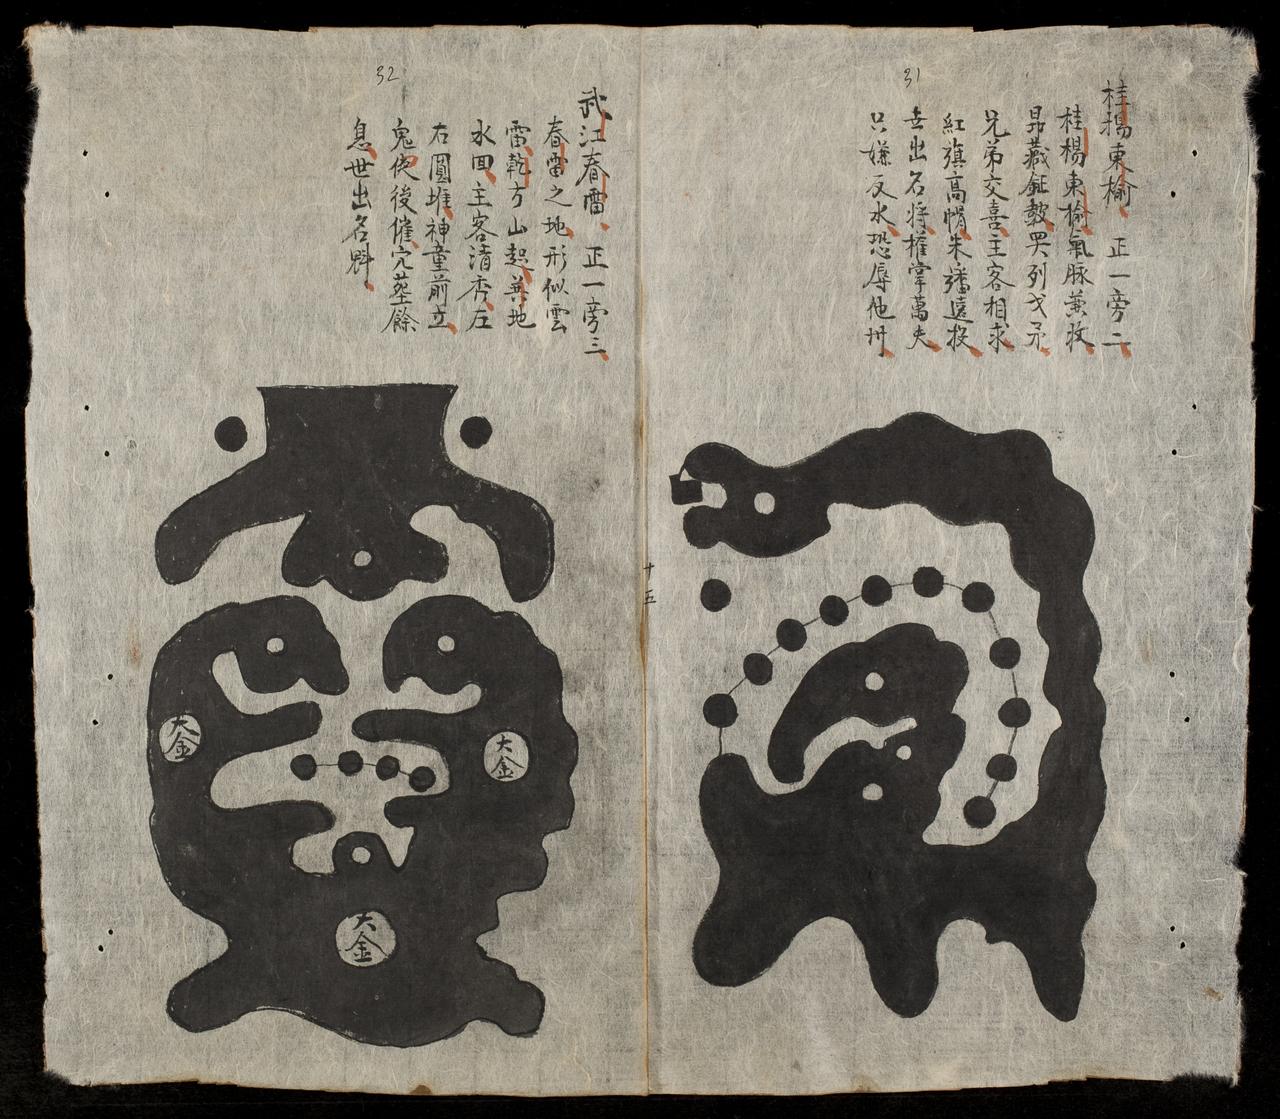 31
桂楊東榆 正一旁二
桂楊東榆氣脉兼收
昂藏鉦鼓罘列戈矛
兄弟交喜主客相求
紅旗高幘朱旛遠投
世出名将權掌萬夫
只嫌反水恐辱他州
十五
32
武江春雷 正一旁三
春雷之地形似雲
雷乾方山起兼地
水回主客清秀左
右圓堆神童前立
鬼使後催穴塟餘
息世出名
大金
大金
大金